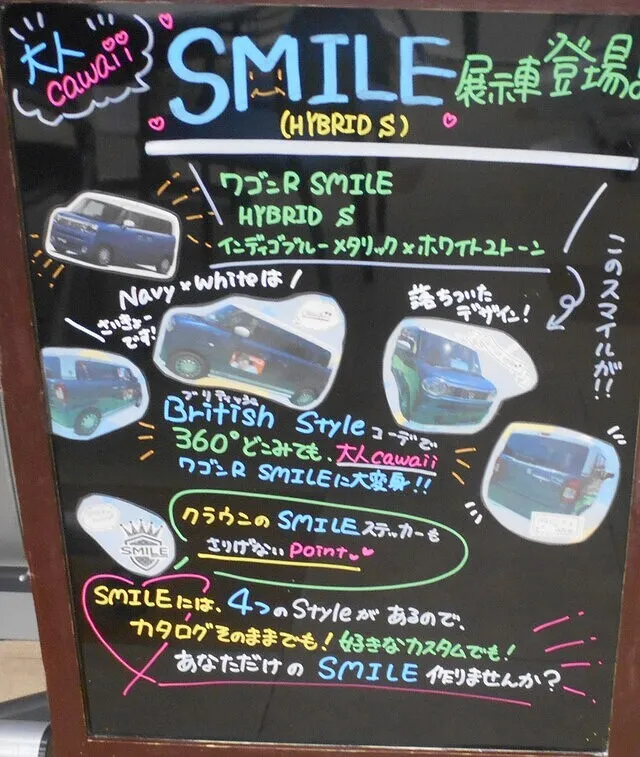 大人
cawaii
SMILE 展示車登場!
(HYBRID S)
ワゴンR SMILE
HYBRID S
インディゴブルーメタリック×ホワイト2トーン
このスマイルが!!
Navy×whiteは!
さいきょーです!
落ちついた
デザイン!
ブリティッシュ
British Style コーデで
360°どこみても、大人cawaii
ワゴンR SMILEに大変身!!
SMILE
クラウンのSMILEステッカーも
さりげないpoint
SMILEには、4つのStyleがあるので、
カタログそのままでも!好きなカスタムでも!
あなただけの SMILE 作りませんか?